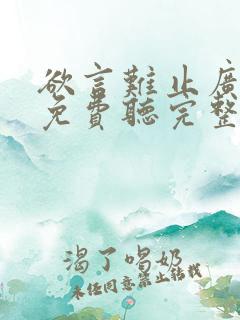 欲言難止廣
免費聽完整
渴了喝奶
未經同意禁止轉載